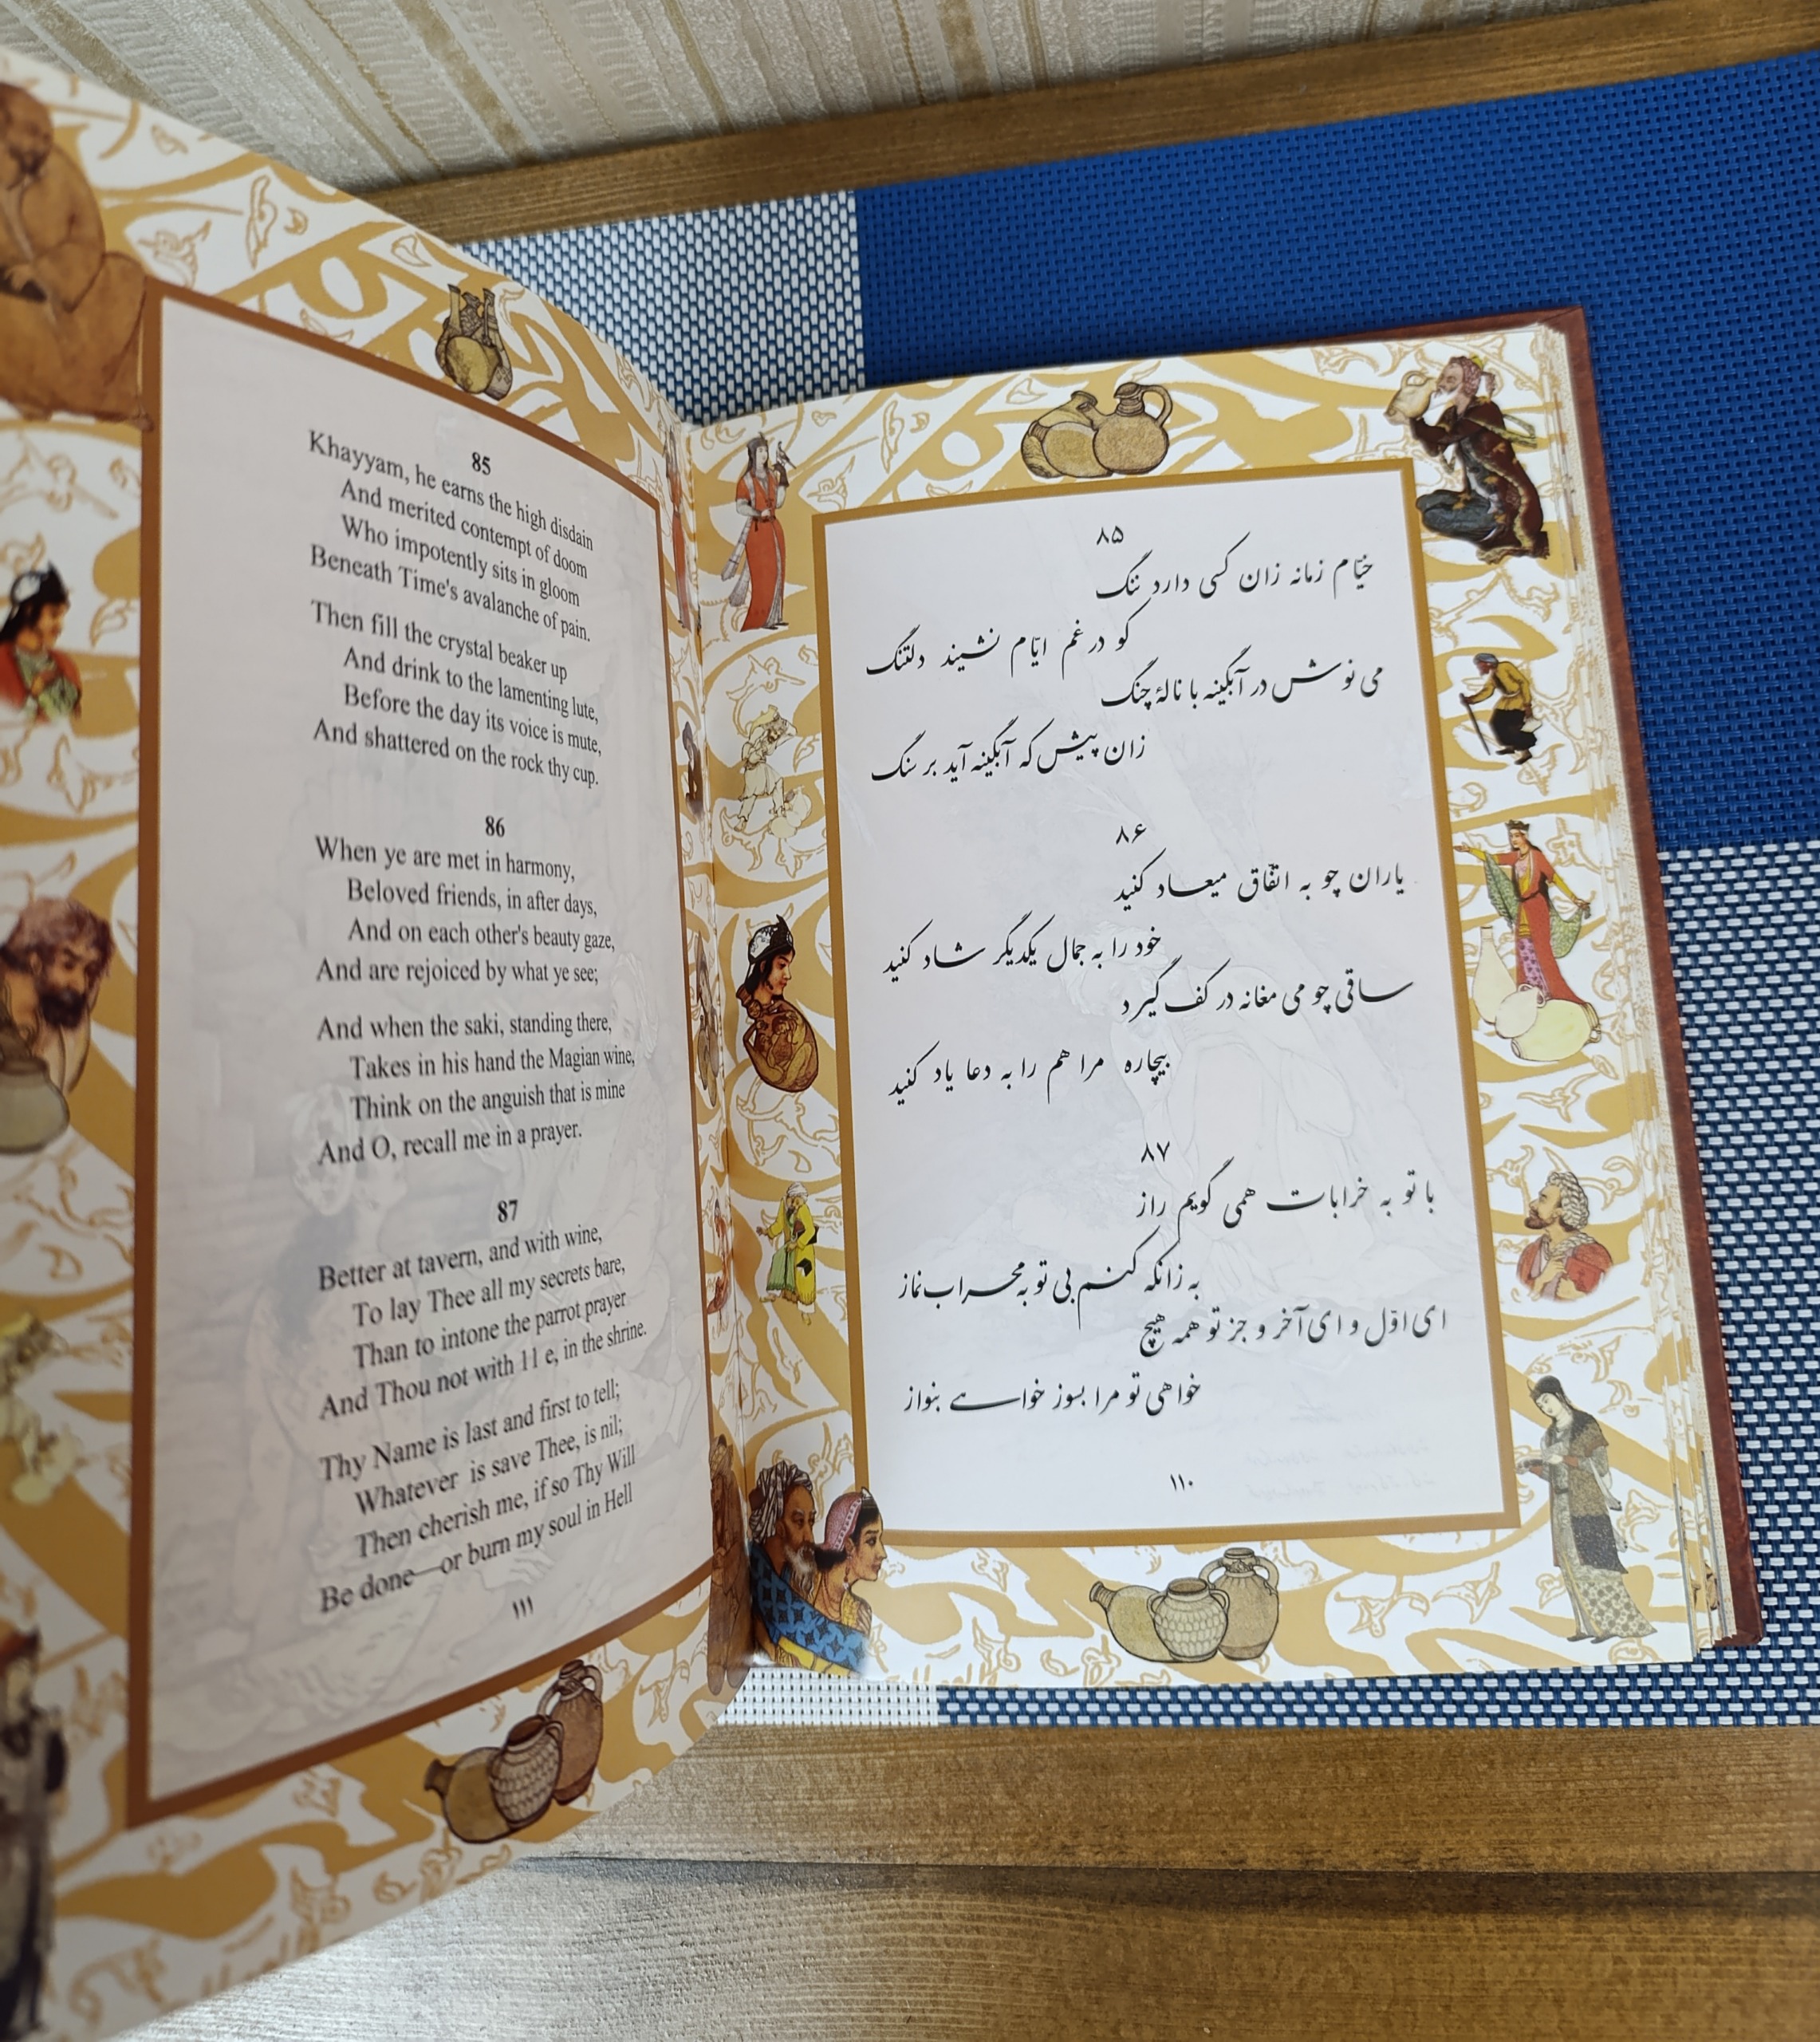 85
Khayyam, he earns the high disdain
And merited contempt of doom
Who impotently sits in gloom
Beneath Time's avalanche of pain.
Then fill the crystal beaker up
And drink to the lamenting lute,
Before the day its voice is mute,
And shattered on the rock thy cup.
86
When ye are met in harmony,
Beloved friends, in after days,
And on each other's beauty gaze,
And are rejoiced by what ye see;
And when the saki, standing there,
Takes in his hand the Magian wine,
Think on the anguish that is mine
And O, recall me in a prayer.
87
Better at tavern, and with wine,
To lay Thee all my secrets bare,
Than to intone the parrot prayer
And Thou not with 11 e, in the shrine.
Thy Name is last and first to tell;
Whatever is save Thee, is nil;
Then cherish me, if so Thy Will
Be done—or burn my soul in Hell
۱۱۱
۸۵
خیّام زمانه زان کسی دارد ننگ
کو در غم ایّام نشیند دلتنگ
می نوش در آبگینه با نالهٔ چنگ
زان پیش که آبگینه آید بر سنگ
۸۶
یاران چو به اتفّاق میعاد کنید
خود را به جمال یکدیگر شاد کنید
ساقی چو می مغانه در کف گیرد
بیچاره مرا هم را به دعا یاد کنید
۸۷
با تو به خرابات همی گویم راز
به زانکه کنم بی تو به محراب نماز
ای اوّل و ای آخر و جز تو همه هیچ
خواهی تو مرا بسوز خواهی بنواز
۱۱۰